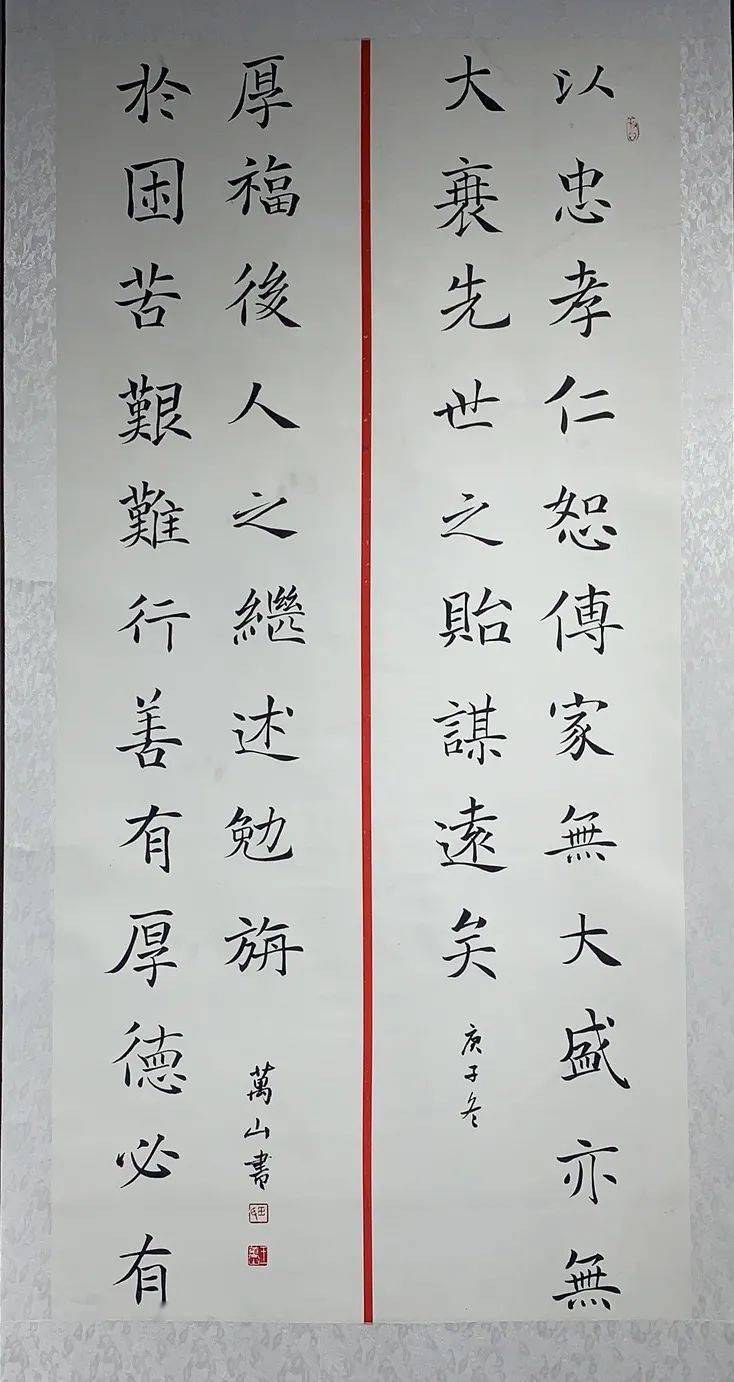 以忠孝仁恕傳家無大盛亦無
大衰先世之貽謀遠矣
庚子冬
於困苦艱難行善有厚德必有
厚福後人之繼述勉旃
萬山書